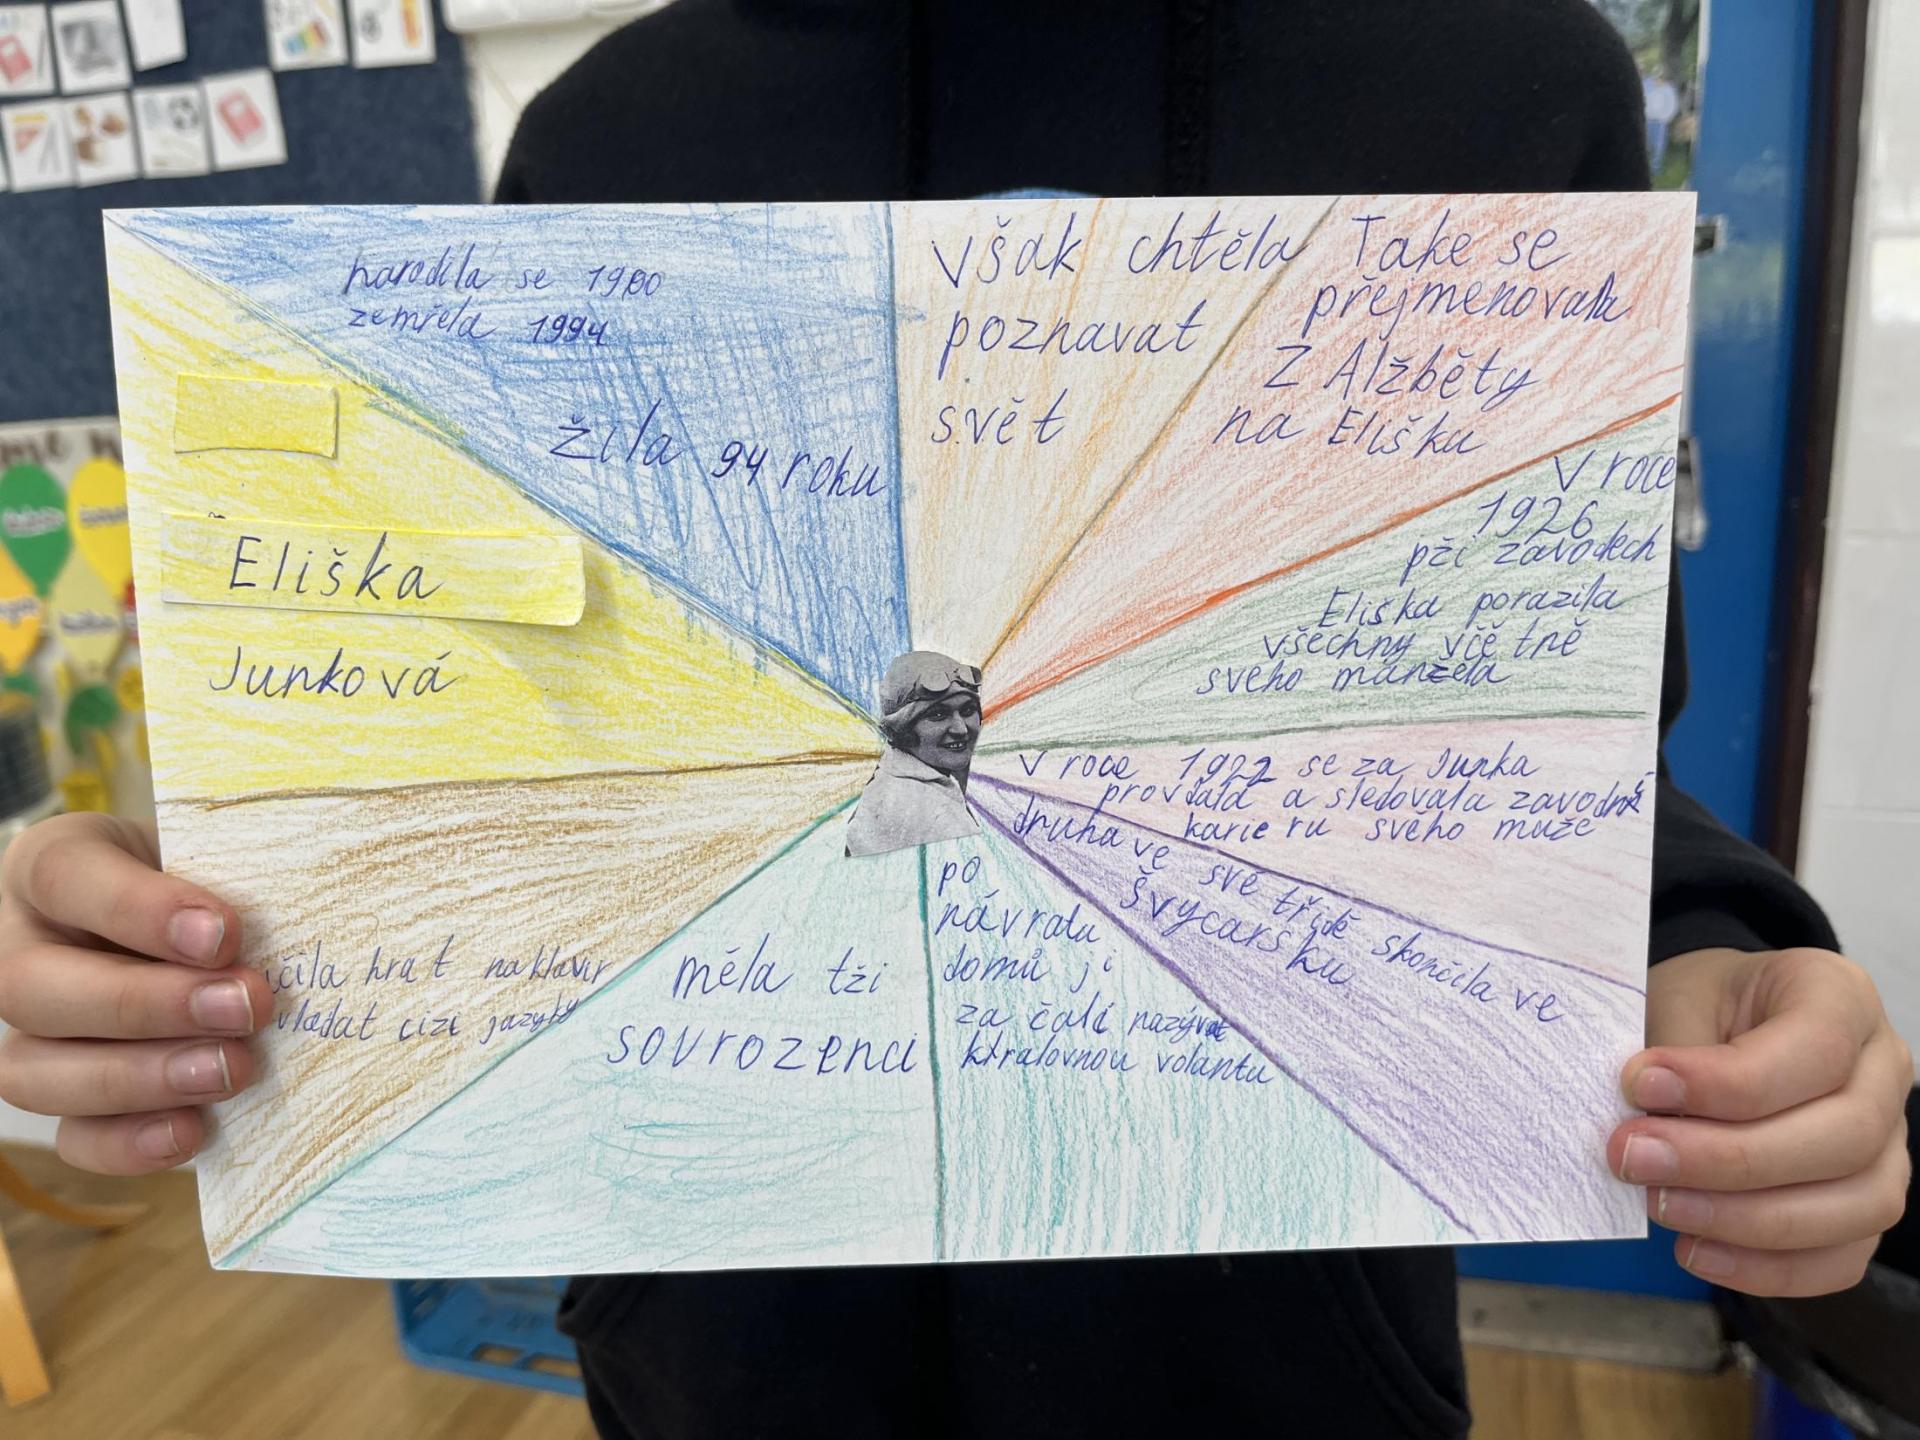 Eliška
Junková
narodila se 1900
zemřela 1994
žila 94 roku
však chtěla
poznavat
svět
Take se
přejmenovala
Z Alžběty
na Elišku
V roce
1926
pži zavodech
Eliška porazila
všechny včě tně
sveho manžela
V roce 1922 se za Junka
provdala a sledovala zavodní
karie ru svého muže
druha ve své třídě skončila ve
Švýcarsku
po
návratu
domů ji
za čali nazývat
kralovnou volantu
měla tži
sovrozenci
hrat na klavir
cizi jazyky